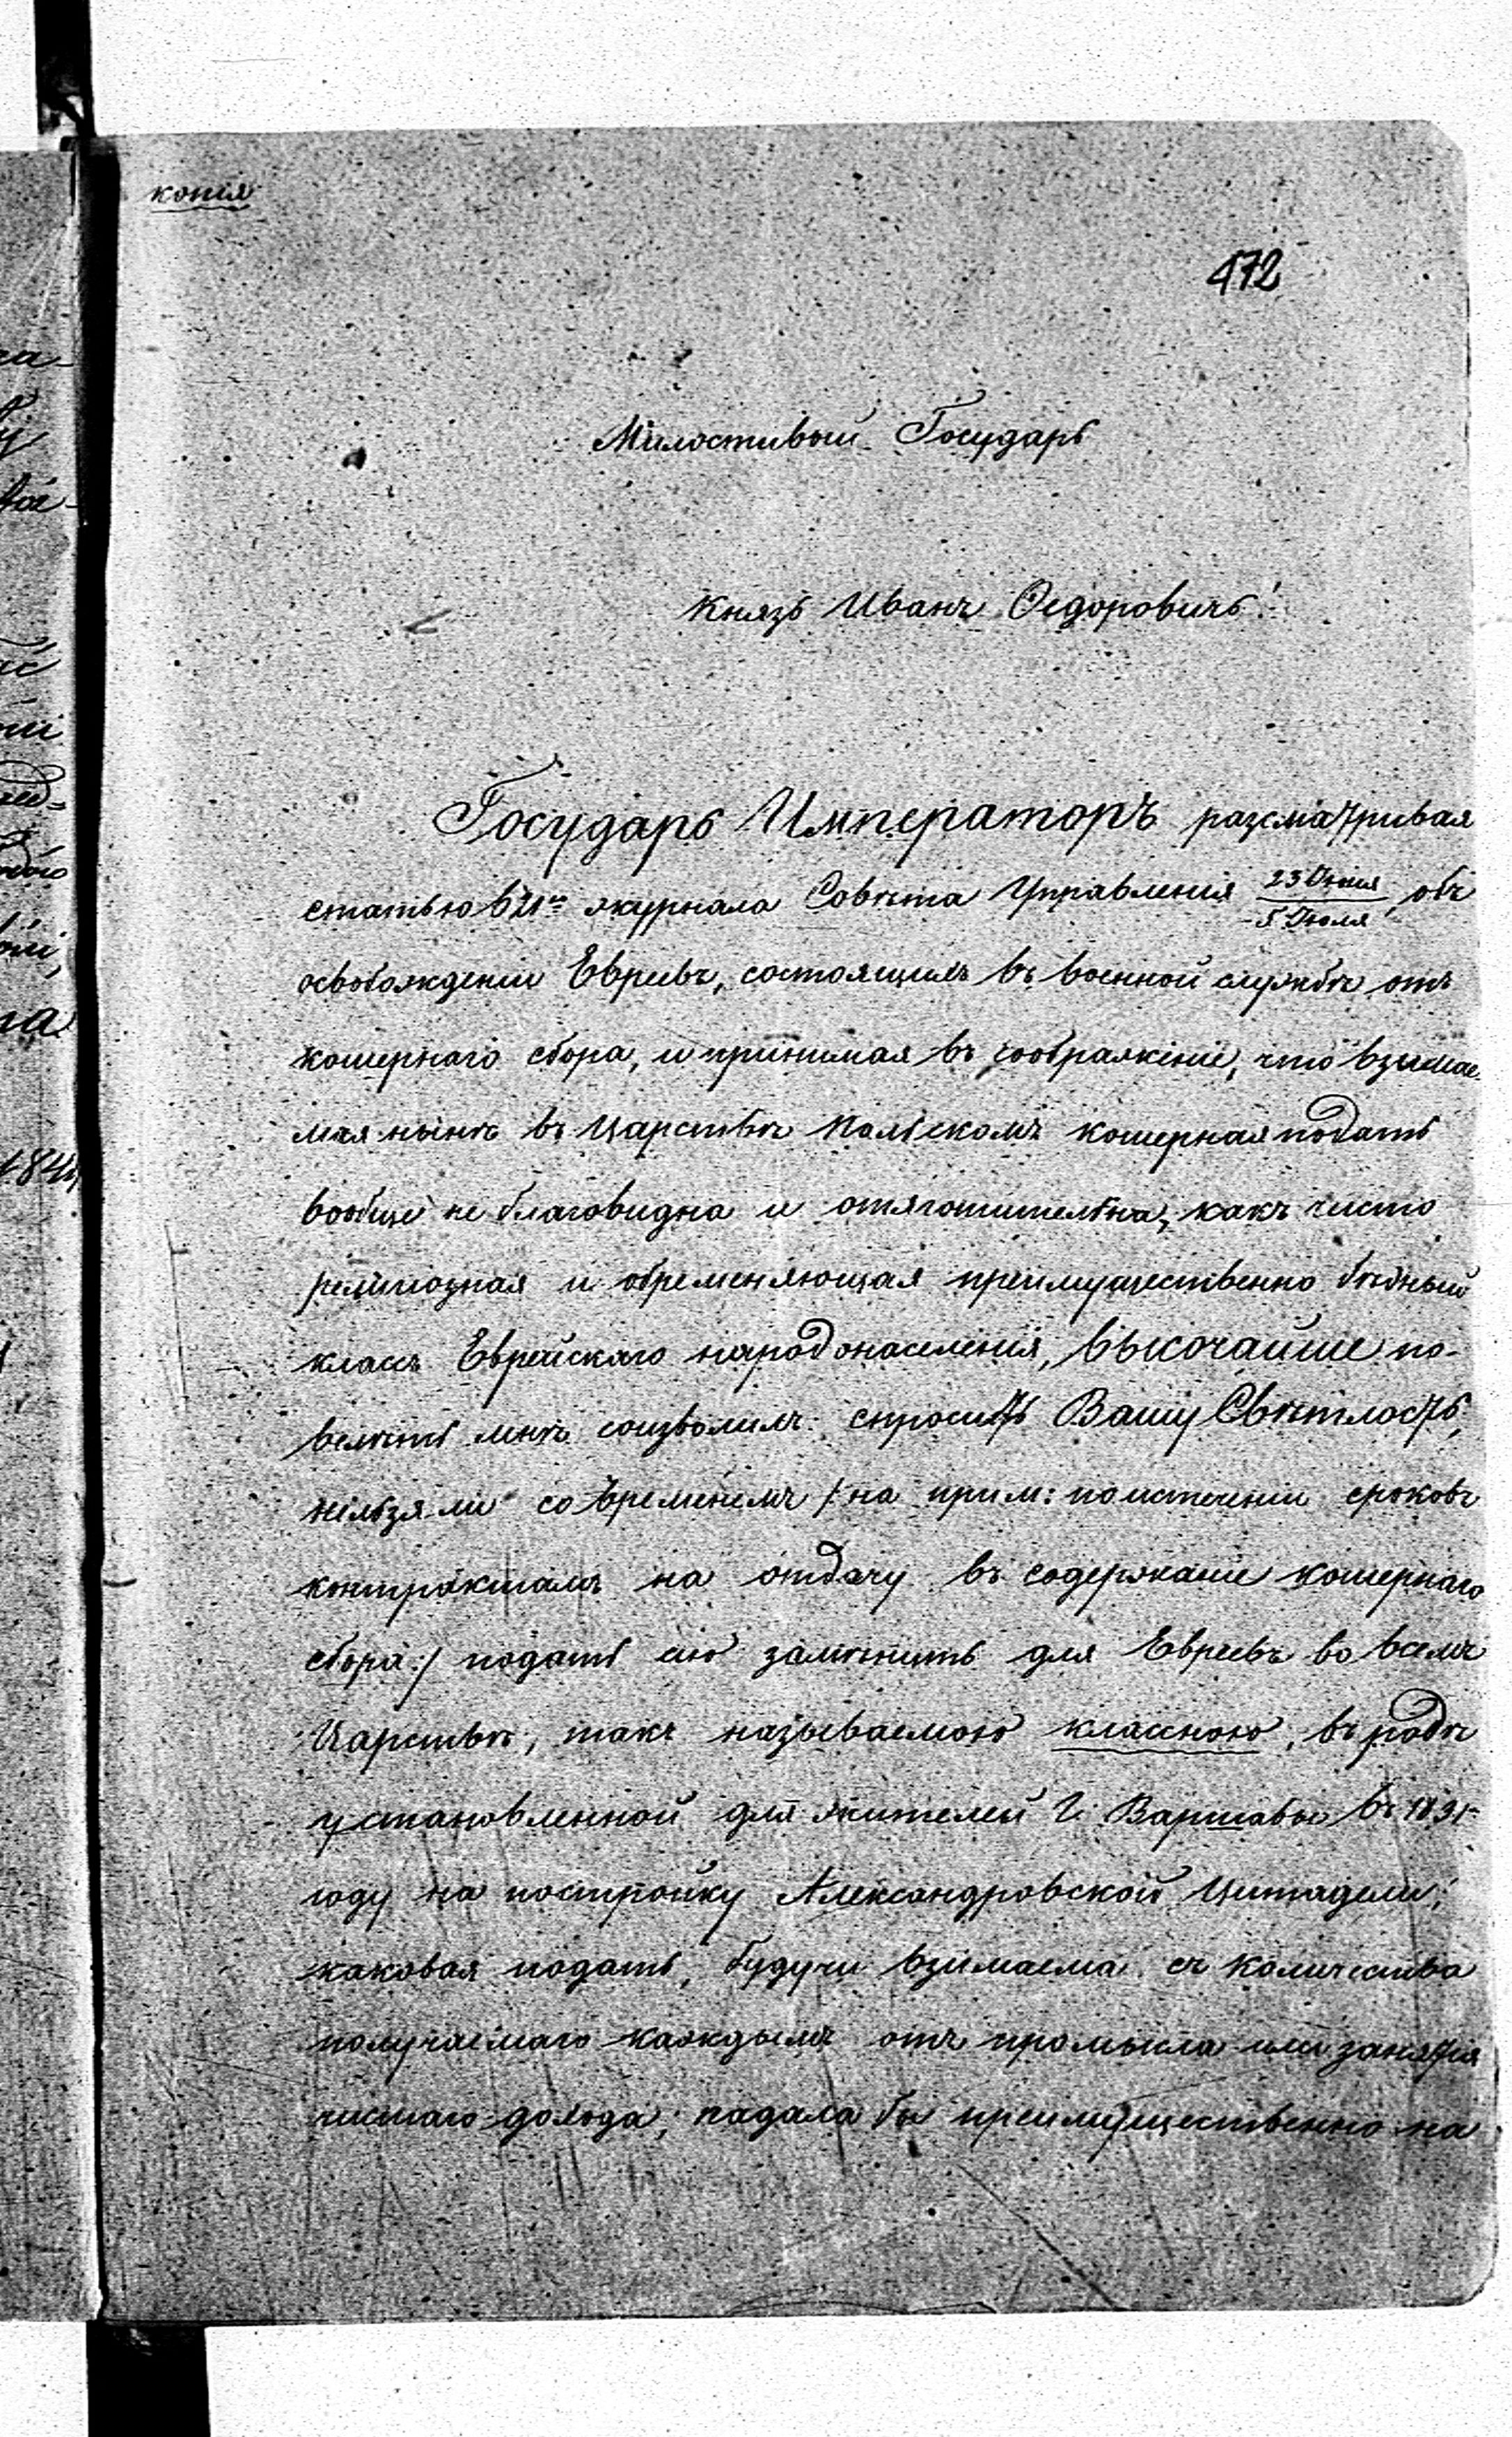 копія
472
Милостивый Государь
Князь Иванъ Ѳедоровичь!
Государь Императоръ разсматривая
статью журнала Совѣта Управленія 23 Іюня / 5 Іюля, объ
освобожденіи Евреевъ, состоящихъ въ военной службѣ отъ
кошернаго сбора, и принимая въ соображеніе, что взимае-
мая нынѣ въ Царствѣ Польскомъ кошерная подать
вообще не благовидна и отяготительна, какъ чисто
религіозная и обременяющая преимущественно бѣдный
классъ Еврейскаго народонаселенія, Высочайше по-
велѣть мнѣ соизволилъ спросить Вашу Свѣтлость,
нельзя ли со временемъ /: на прим: по истеченіи сроковъ
контрактамъ на отдачу въ содержаніе кошернаго
сбора :/ подать сію замѣнить для Евреевъ во всемъ
Царствѣ, такъ называемою классною, въ родѣ
установленной для жителей г. Варшавы въ 1831
году на постройку Александровской Цитадели;
каковая подать, будучи взимаема съ количества
получаемаго каждымъ отъ промысла или занятія
чистаго дохода, падала бы преимущественно на